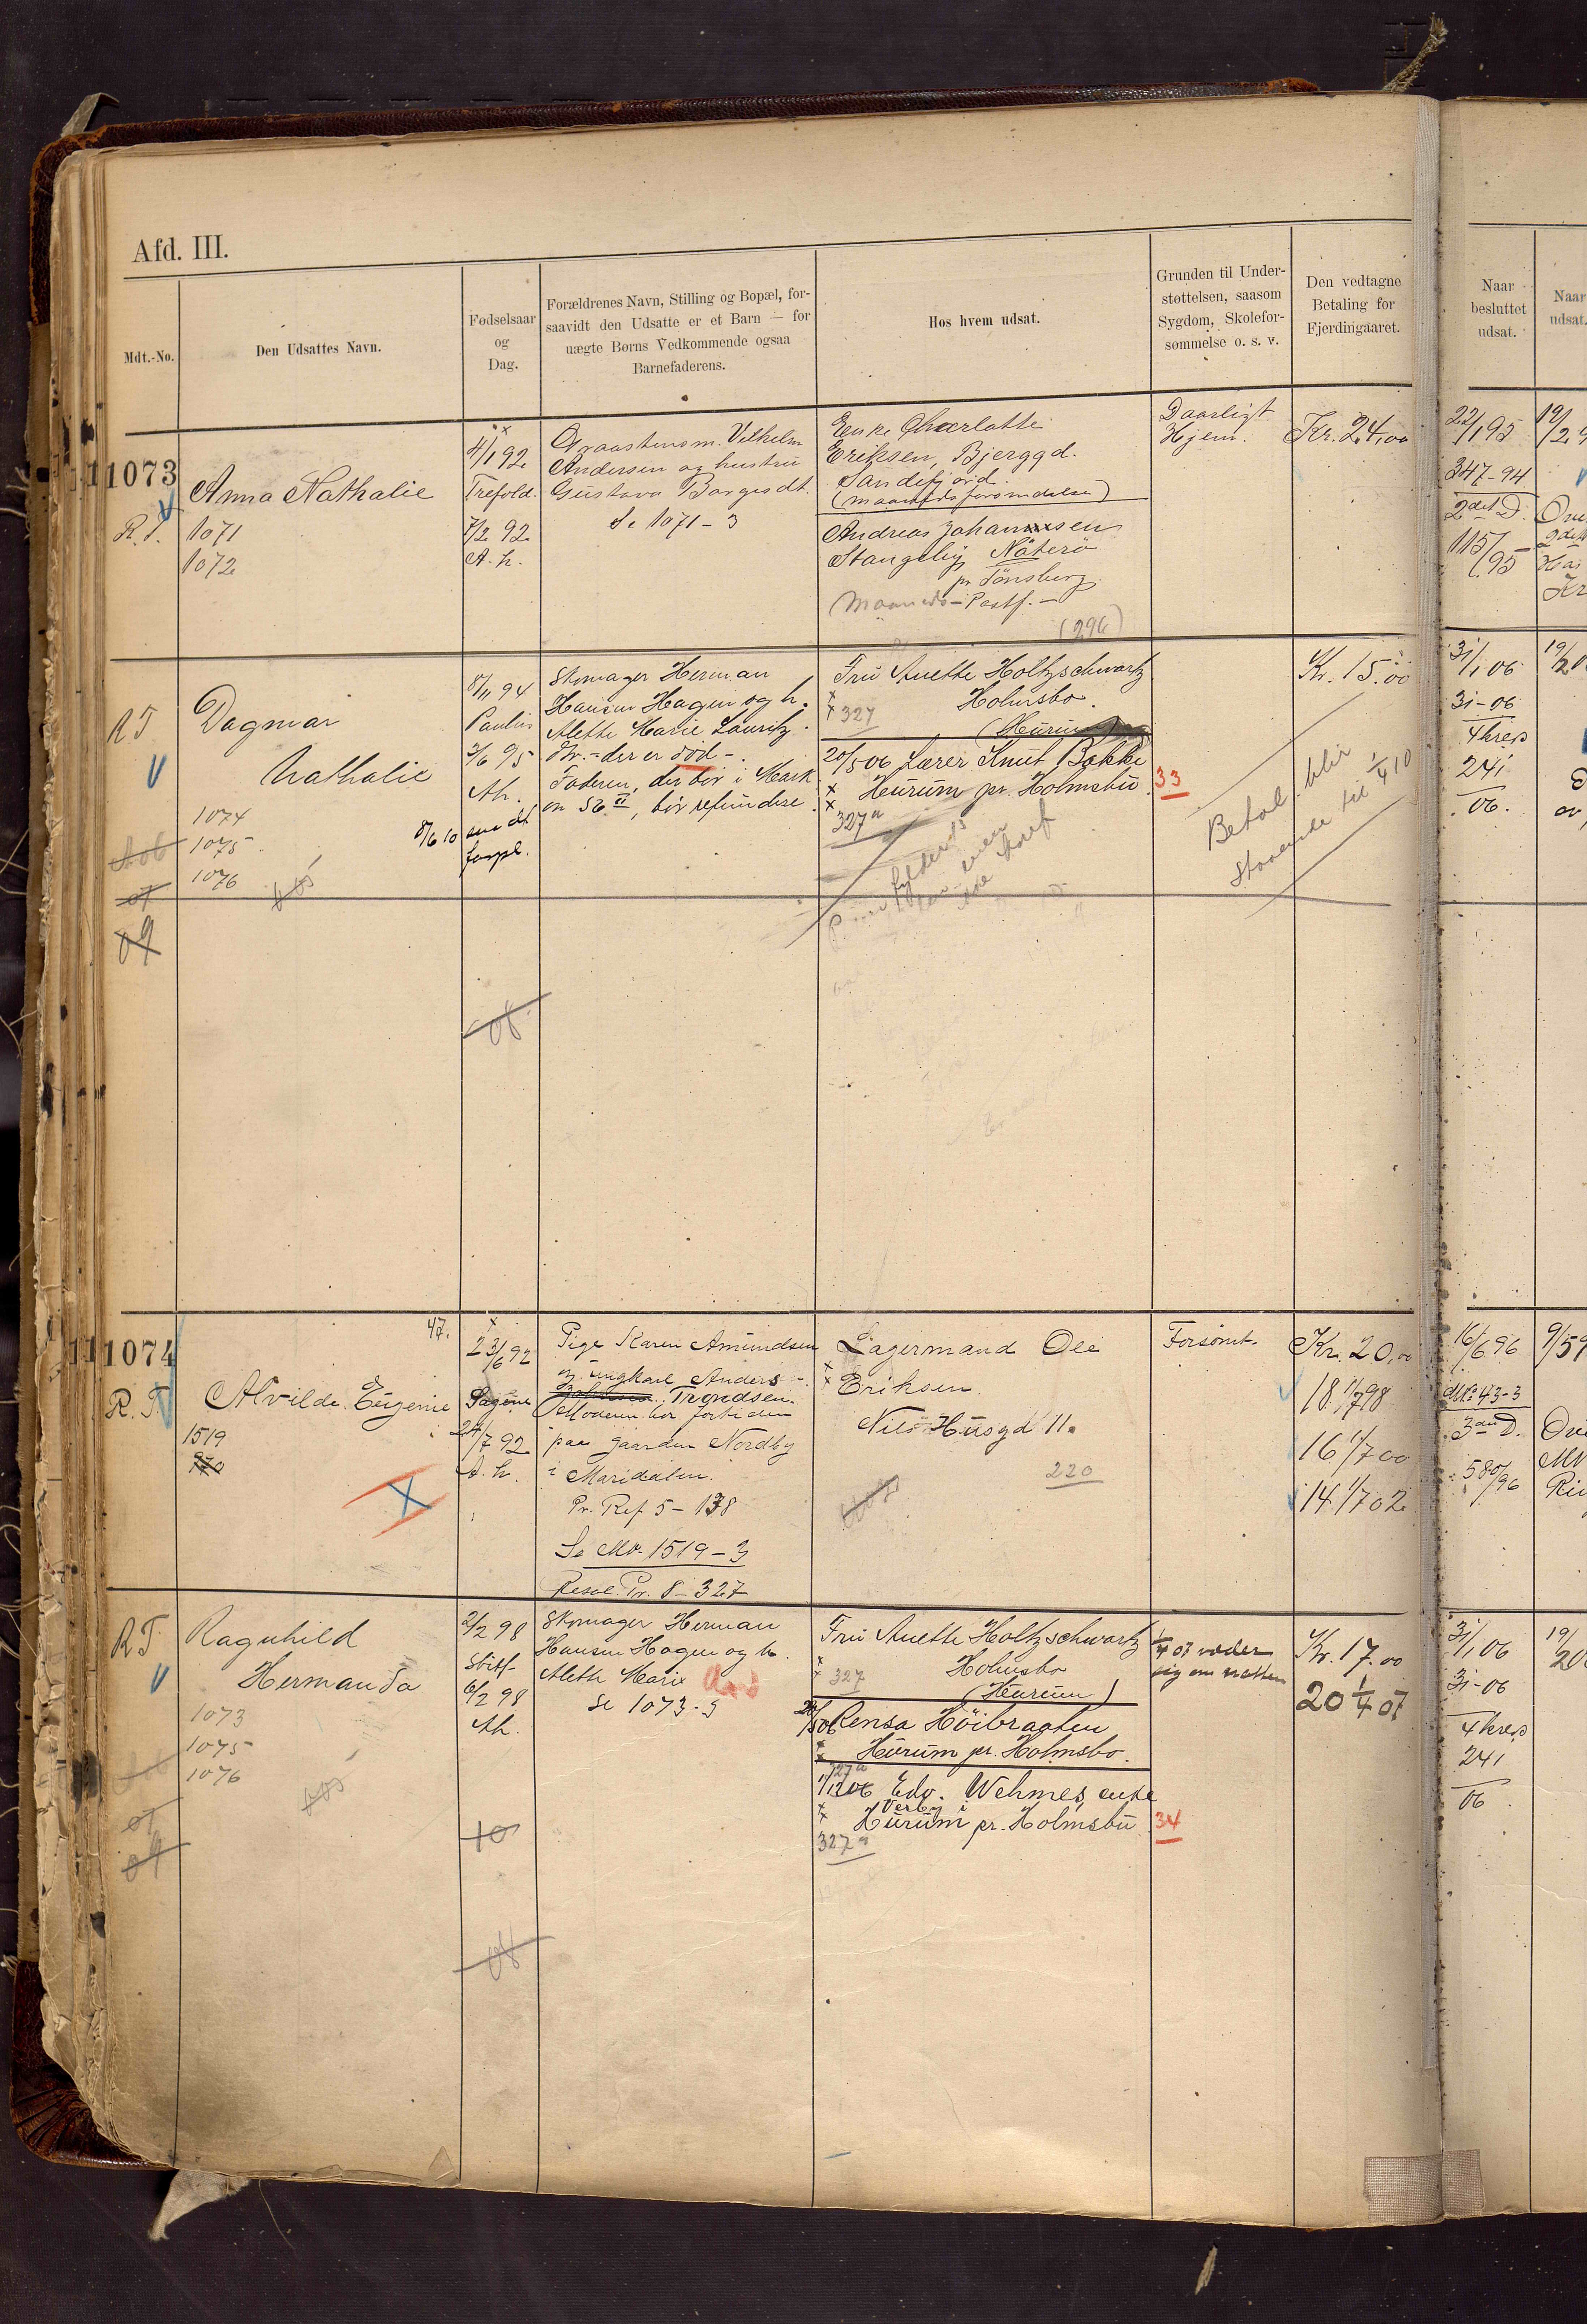 Afd. III.
Mdt.-No.
Den Udsattes Navn.
Fødselsaar
og
Dag.
Forældrenes Navn, Stilling og Bopæl, for-
saavidt den Udsatte er et Barn — for
uægte Børns Vedkommende ogsaa
Barnefaderens.
Hos hvem udsat.
Grunden til Under-
støttelsen, saasom
Sygdom, Skolefor-
sømmelse o. s. v.
Den vedtagne
Betaling for
Fjerdingaaret.
Naar
besluttet
udsat.
Naar
udsat.
11073
R. T.
Anna Nathalie
1071
1072
4/1 92
Trefold.
7/2 92
A. h.
Graastensm. Vilhelm
Andersen og hustru
Gustava Borgesdt.
Se 1071-3
Enke Charlotte
Eriksen, Bjerggd.
Sandefjord.
Andreas Johannssen
Stangeby Nøterø
pr Tønsberg.
Maaneds-Postf.-
(296)
Daarligt
Hjem.
Kr. 24,00
22/1 95
347-94
2det D.
115/95
RT
Dagmar
Nathalie
1074
1075
1076
8/11 94
Paulus
3/6 95
Ah.
8/6 10
Skomager Herman
Hansen Hagen og h.
Alethe Marie Lauritz
dtr. - der er død -.
Faderen, der bor i Mark
vn 56 II, bør refundere.
Fru Anette Holtzschwartz
Holmsbo.
327
(Hurum)
20/5 06 Lærer Knut Bakke
Hurum pr. Holmsbu
33
327a
Kr. 15.00
Betal. blir
staaende til 1/4 10
31/1 06
31-06
4 kreds
241
06.
of
11074
R. T.
47.
Alvilde Eugenie
1519
23/6 92
Sagene
24/7 92
A. h.
Pige Karen Amundsen
og ungkarl Anders
Trondsen.
Moderen bor fortiden
paa gaarden Nordby
i Maridalen.
Pr. Ref 5-138
Se Mv. 1519-3
Resol. Pr. 8-327
Lagermand Ole
Eriksen.
Nils Husgd 11.
220
Forsømt.
Kr. 20,00
18 1/7 98
16 1/7 00
14 1/7 02
16/6 96
3die D.
580/96
RT
Ragnhild
Hermanda
1073
1075
1076
2/2 98
Stift
6/2 98
Ah.
Skomager Herman
Hansen Hagen og h.
Alethe Marie
Se 1073-3
Fru Anette Holtzschwartz
Holmsbo
327
(Hurum)
20/5 06 Rensa Høibraaten
Hurum pr. Holmsbo.
1/12 06 Edv. Wehmes enke
Verby i
Hurum pr. Holmsbu
34
327a
1/4 07 væder
sig om natten
Kr. 17.00
20 1/4 07
31/1 06
31-06
4 kreds
241
06